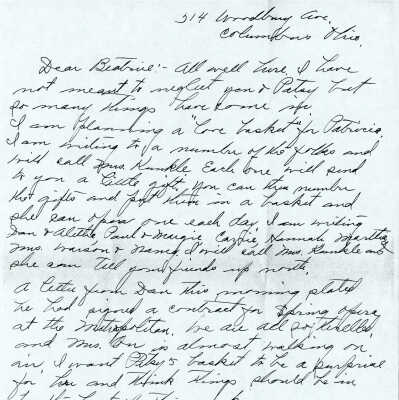 314 Woodbury Ave.
Columbus Ohio.
Dear Beatrice:- All well here. I have
not meant to neglect you & Patsy but
so many things have come up.
I am planning a "love basket" for Patricia.
I am writing to a number of the folks and
will call Mrs. Kunkle. Each one will send
to you a little gift. You can then number
the gifts and put them in a basket and
she can open one each day. I am writing
Dan & Aletha, Paul & Margie, Hannah, Martha,
Mrs. Warson & Nancy. I will call Mrs. Kunkle and
she can tell your friends up north.
A letter from Dan this morning stated
he had signed a contract for Spring opera
at the Metropolitan. We are all so thrilled
and Mrs. is almost walking on
air. I want Patsy's basket to be a surprise
for her and think things should be in